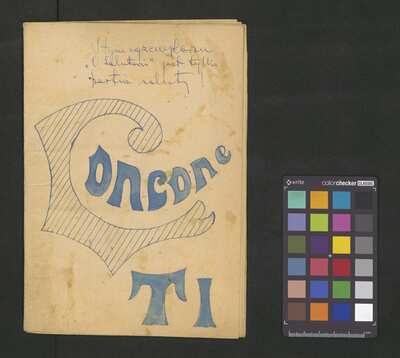 W tym egzemplarzu
"O Salutari" jest tylko
partia solisty
Concone
T I
x-rite
colorchecker CLASSIC